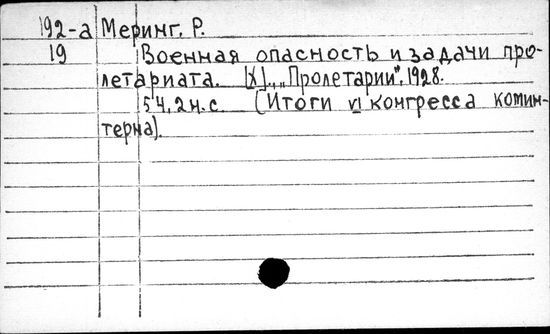 192-а Меринг, Р.
19 Военная опасность и задачи про-
летариата. [Х]., „Пролетарии", 1928.
54, 2 н. с. (Итоги VI конгресса комин-
терна).